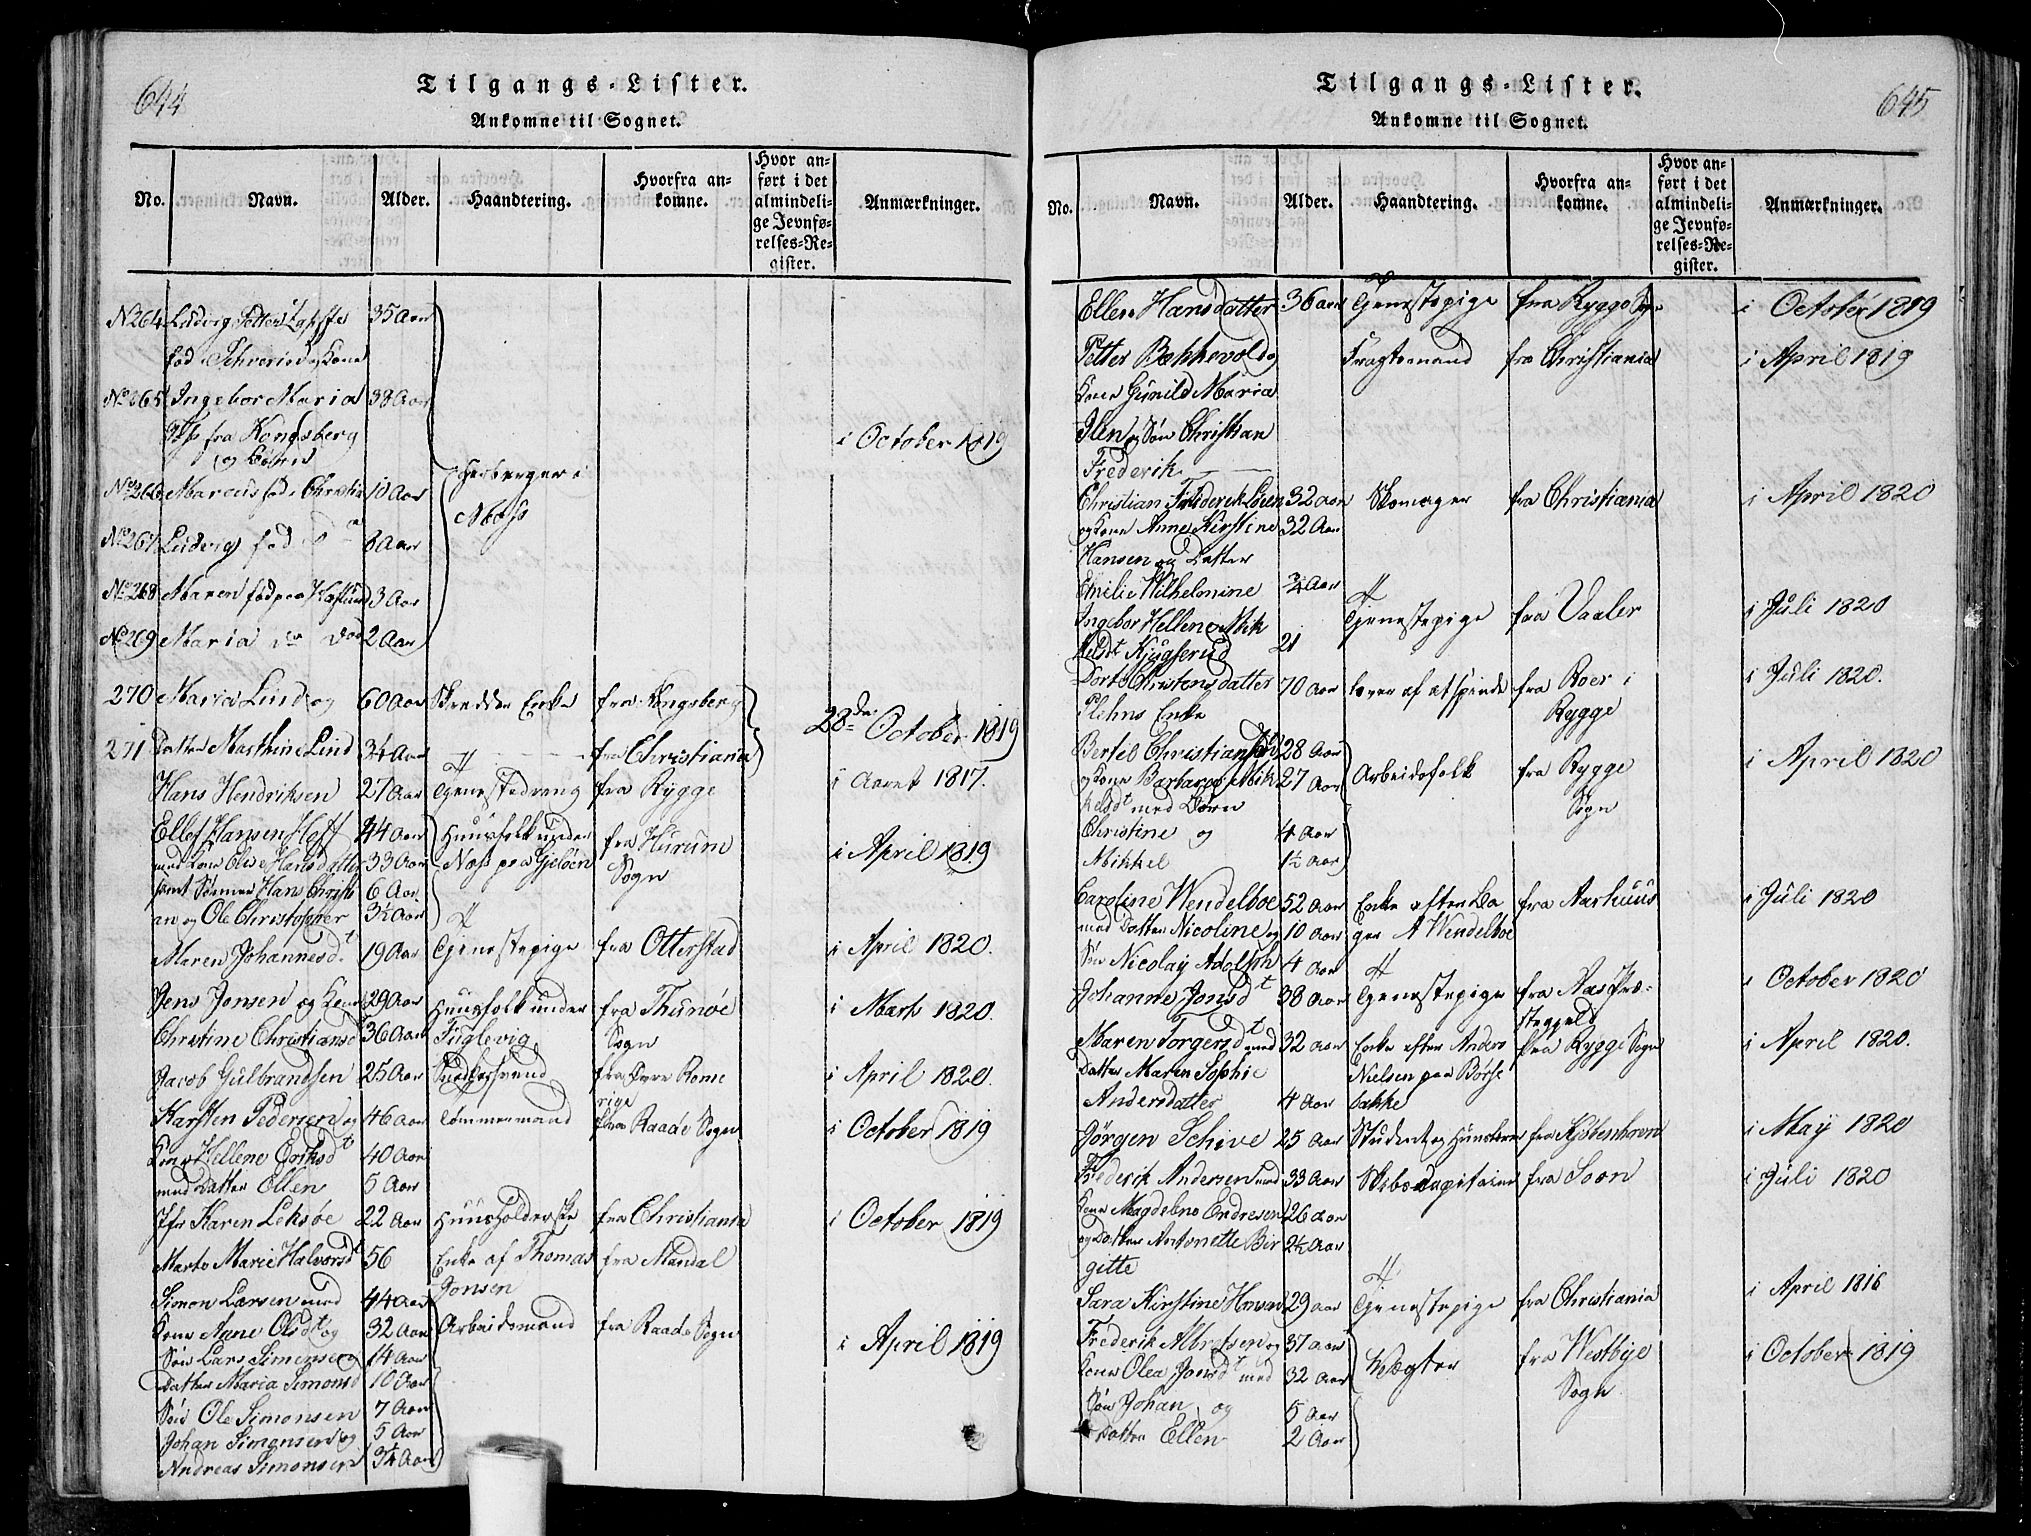 644
Tilgangs-Lister.
Ankomne til Sognet.
No. Navn. Alder. Haandtering. Hvorfra ankomne. Hvor anført i det almindelige Jevnførelses-Register. Anmærkninger.
No 264 Ludvig Petter 35 Aar
fød i Schverin og Kone
No 265 Ingebor Maria 38 Aar
fra Kongsberg
i October 1819
og Børn
No 266 Marcus fød i Christia 10 Aar Herberger i
Moss
No 267 Ludvig fød Do 8 Aar
No 268 Maren fød paa 3 Aar
No 269 Maria do do 2 Aar
270 Maria Lind og 60 Aar Skredder Enke fra Kongsberg
28de October 1819
271 Datter Mathine Lind 34 Aar fra Christiania
Hans Hendriksen 27 Aar Tjenestedreng fra Rygge i Aaret 1817.
Ellef Hansen Hoff 44 Aar Huusfolk under fra Hurum i April 1819
med Kone Hansdatter 33 Aar Næs paa Gjeløen Sogn
samt Sønner Hans Christi 6 Aar
an og Ole Christopher 3½ Aar
Maren Johannesdt 19 Aar Tjenestepige fra Otterstad i April 1820.
Jens Jonsen og Kone 29 Aar Huusfolk under fra Thunøe i Marts 1820.
Christine Christiansd 36 Aar Fuglevig Sogn
Jacob Gulbrandsen 25 Aar fra i April 1820.
rige
Karsten Pedersen og 46 Aar Tømmermand fra Raade Sogn i October 1819
Kone Hellene Eriksdt 40 Aar
med Datter Ellen 5 Aar
Jfr Karen Leksøe 22 Aar Huusholderske fra Christiania i October 1819
Marte Marie Halvorsdt 56 Enke af Thomas fra Mandal
Jonsen
Simon Larsen med 44 Aar
Kone Anne Olsdt og 32 Aar Arbeidsmand fra Raade Sogn i April 1819
Søn Lars Simonsen 14 Aar
Datter Maria Simonsd 10 Aar
Søn Ole Simonsen 7 Aar
Johan Simonsen og 5 Aar
Andreas Simonsen ¾ Aar
645
Tilgangs-Lister.
Ankomne til Sognet.
No. Navn. Alder. Haandtering. Hvorfra ankomne. Hvor anført i det almindelige Jevnførelses-Register. Anmærkninger.
Ellen Hansdatter 36 aar Tjenestepige fra Rygge Sogn i October 1819
Petter Bekkevold og Fragtemand fra Christiania i April 1819
Kone Gunild Maria
Ilen og Søn Christian
Frederik
Christian Frederik 32 aar Skomager fra Christiania i April 1820
og Kone Anne Kirstine 32 Aar
Hansen og Datter
Emilie Wilhelmine ¾ Aar
Ingebor Hellene Mik Tjenestepige fra Vaaler i Juli 1820
keldt 21
Dorte Christensdatter 70 aar lever af at spinde fra Roer i i Juli 1820.
Plehns Enke Rygge
Bertel Christiansen 28 aar
og Kone Barbara Mik 27 Aar Arbeidsfolk fra Rygge i April 1820
kelsdt med Børn Sogn
Christine og 4 Aar
Mikkel 1½ Aar
Caroline Wendelboe 52 Aar Enke efter Ba fra Aarhuus i Juli 1820
med Datter Nicoline og 10 Aar ger A Wendelboe
Søn Nicolay Adolph 4 Aar
Johanne Jonsdt 38 Aar Tjenestepige fra Aas Præ- i October 1820
stegjeld
Maren Torgersdt med 32 aar Enke efter Anders fra Rygge Sogn i April 1820.
Datter Maren Sophie Nielsen paa Børse
Andersdatter 4 Aar bakke
Jørgen Schive 25 Aar Student og Huuslærer fra Kjøbenhavn i May 1820
Frederik Andersen med 33 Aar Skibscapitaine fra Soon i Juli 1820
Kone Magdelene Endresen 26 aar
og Datter Antonette Bir 2½ Aar
gitte
Sara Kirstine Hansen 29 aar Tjenestepige fra Christiania i April 1816
Frederik Albretsen og 37 aar Vægter fra Westbye i October 1819
Kone Olea Jonsdt med 32 Aar Sogn
Søn Johan og 5 Aar
Datter Ellen 2 Aar